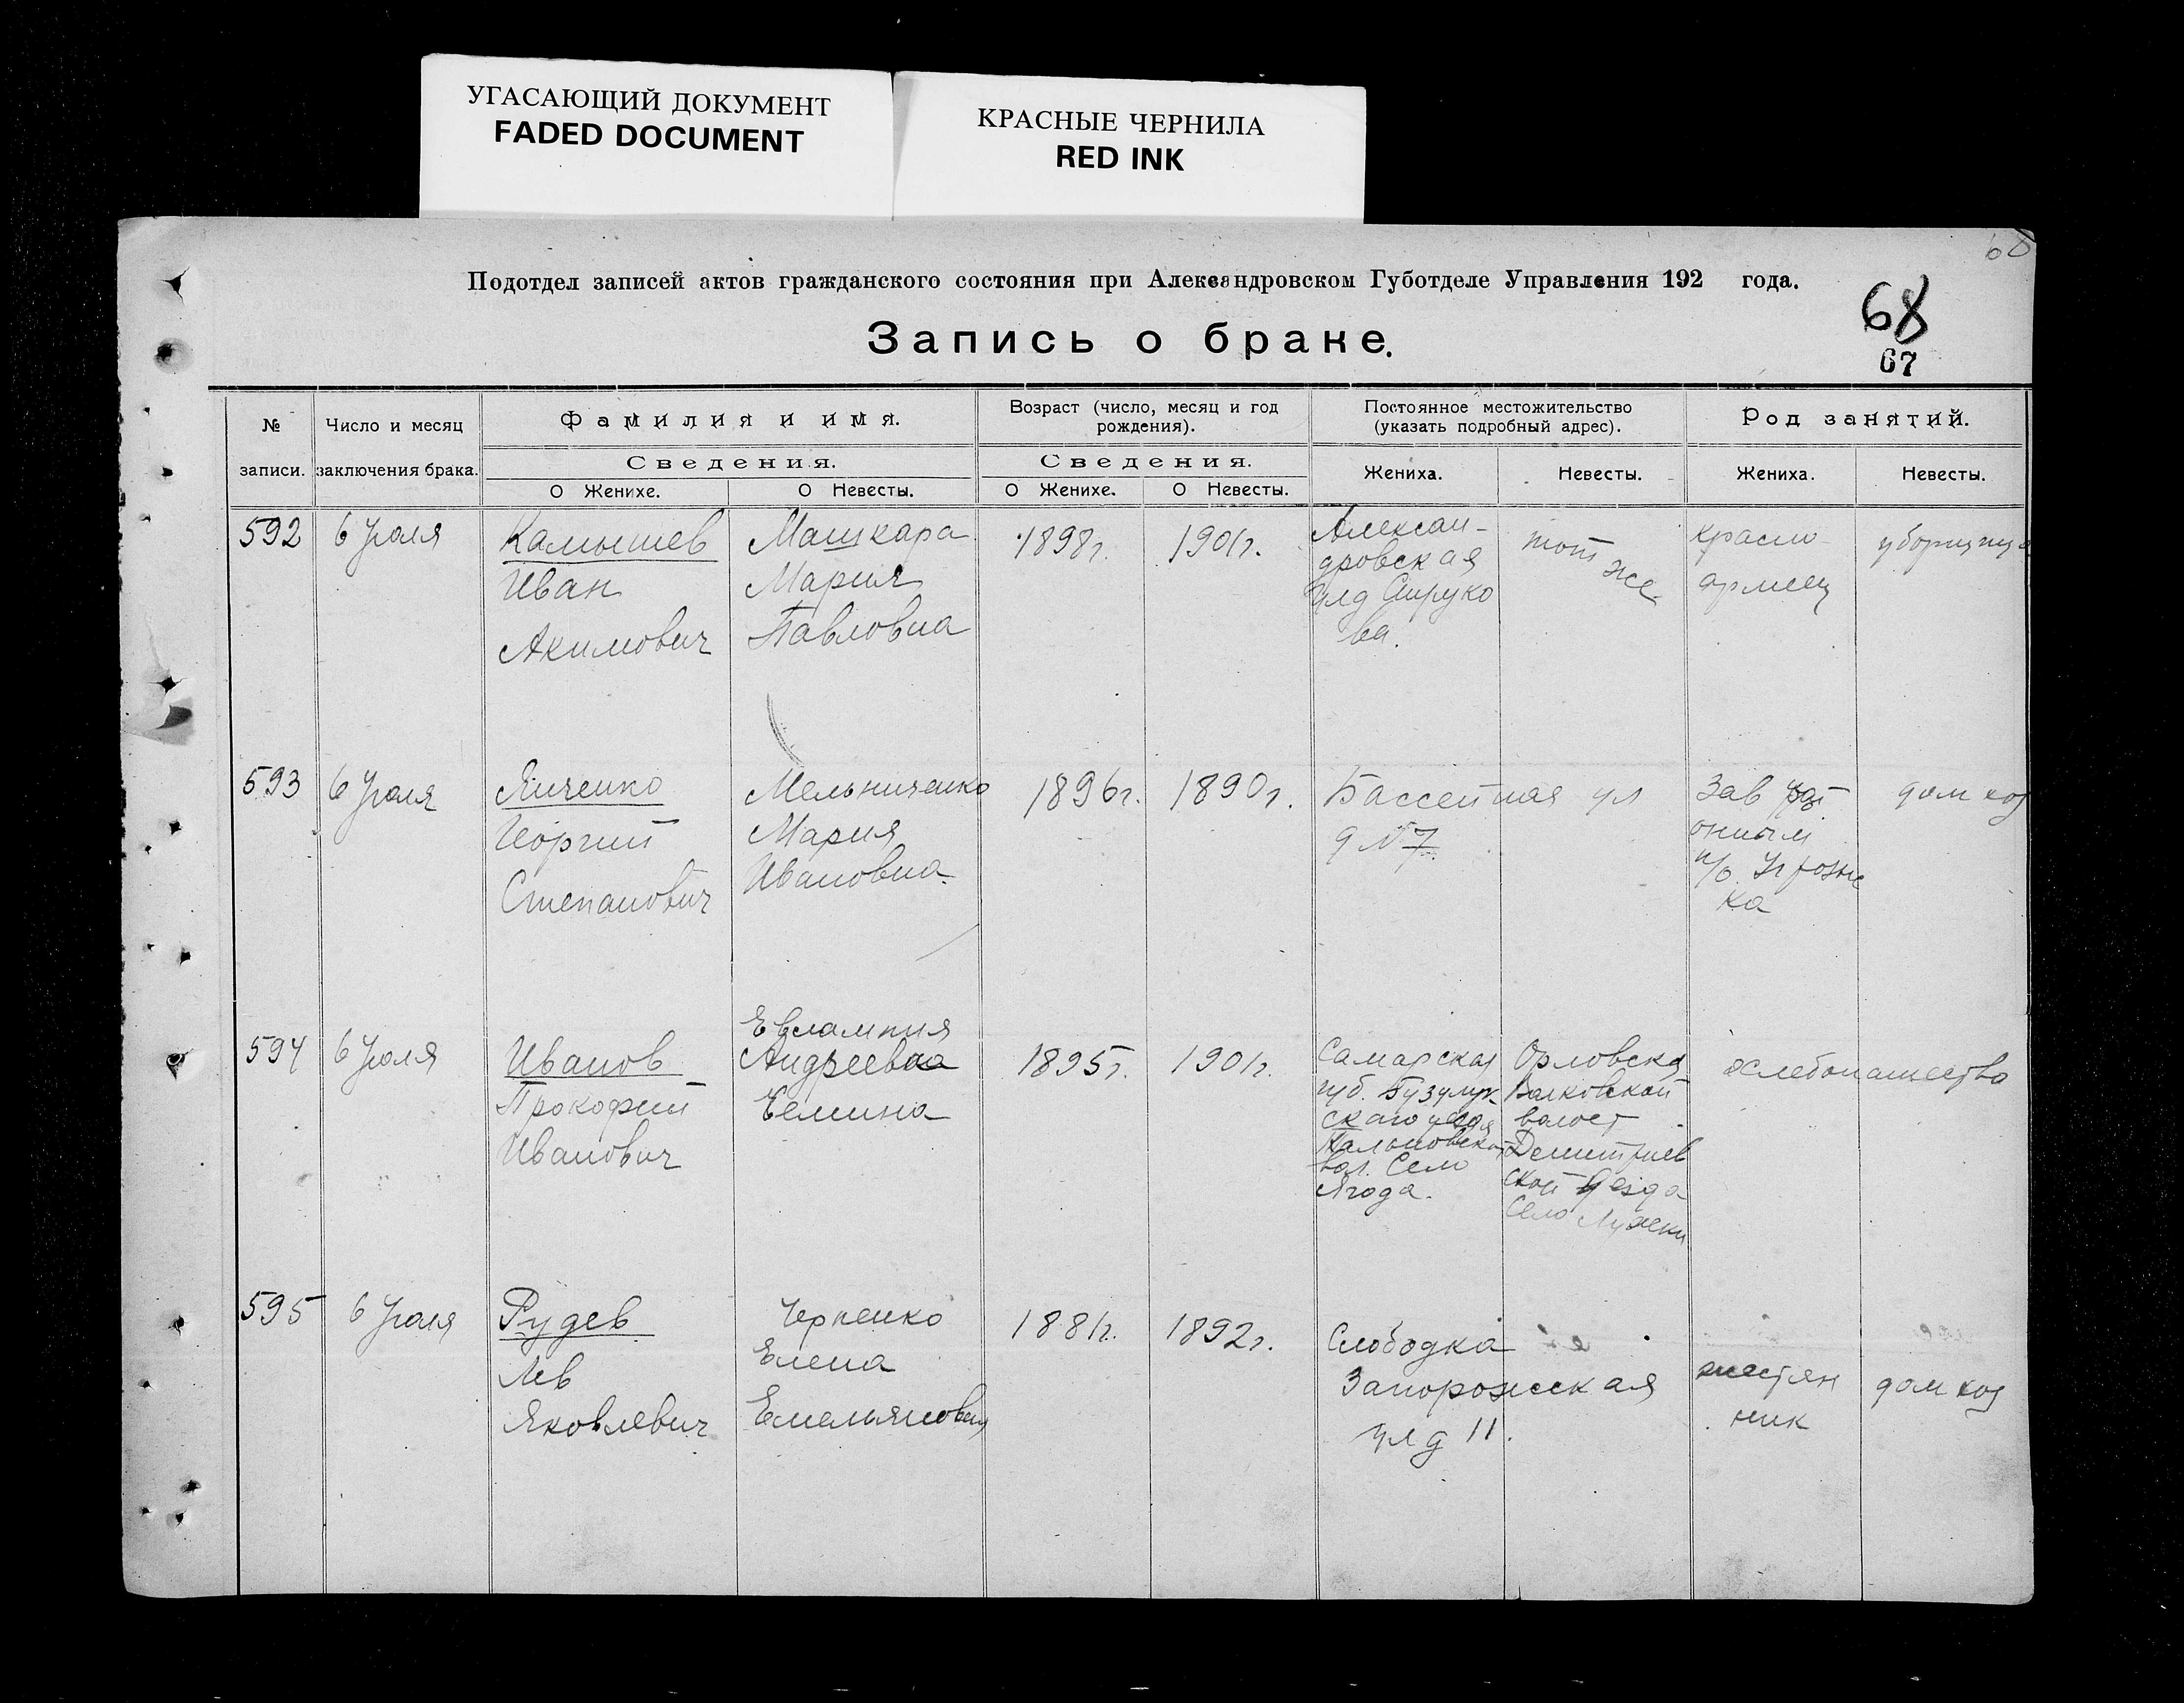 УГАСАЮЩИЙ ДОКУМЕНТ
FADED DOCUMENT
КРАСНЫЕ ЧЕРНИЛА
RED INK
68
Подотдел записей актов гражданского состояния при Александровском Губотделе Управления 192 года.
68
Запись о браке.
67
№ записи.
Число и месяц заключения брака.
Фамилия и имя.
Сведения.
О Женихе.
О Невесты.
Возраст (число, месяц и год рождения).
Сведения.
О Женихе.
О Невесты.
Постоянное местожительство (указать подробный адрес).
Жениха.
Невесты.
Род занятий.
Жениха.
Невесты.
592
6 Июля
Камышев
Иван
Акимович
Машкара
Мария
Павловна
1898г.
1901г.
Алексан-
дровская
улд
ва.
тот
же
красно-
армеец
уборщица
593
6 Июля
Янченко
Георгий
Степанович
Мельниченко
Мария
Ивановна
1896г.
1890г.
Бассейная ул
д №7
Зав
онным
ка
дом хоз
594
6 Июля
Иванов
Прокофий
Иванович
Евлампия
Андреевна
Семина
1895г.
1901г.
Самарская
губ. Бузулук
скаго уезда
вол. Село
Ягода.
Орловска
волост
Дмитриев
ской Уезда
Село
хлебопашество
595
6 Июля
Рудев
Лев
Яковлевич
Черненко
Елена
Емельяновна
1881г.
1892г.
Слободка
Запорожская
ул д 11.
жестян
ник
дом хоз